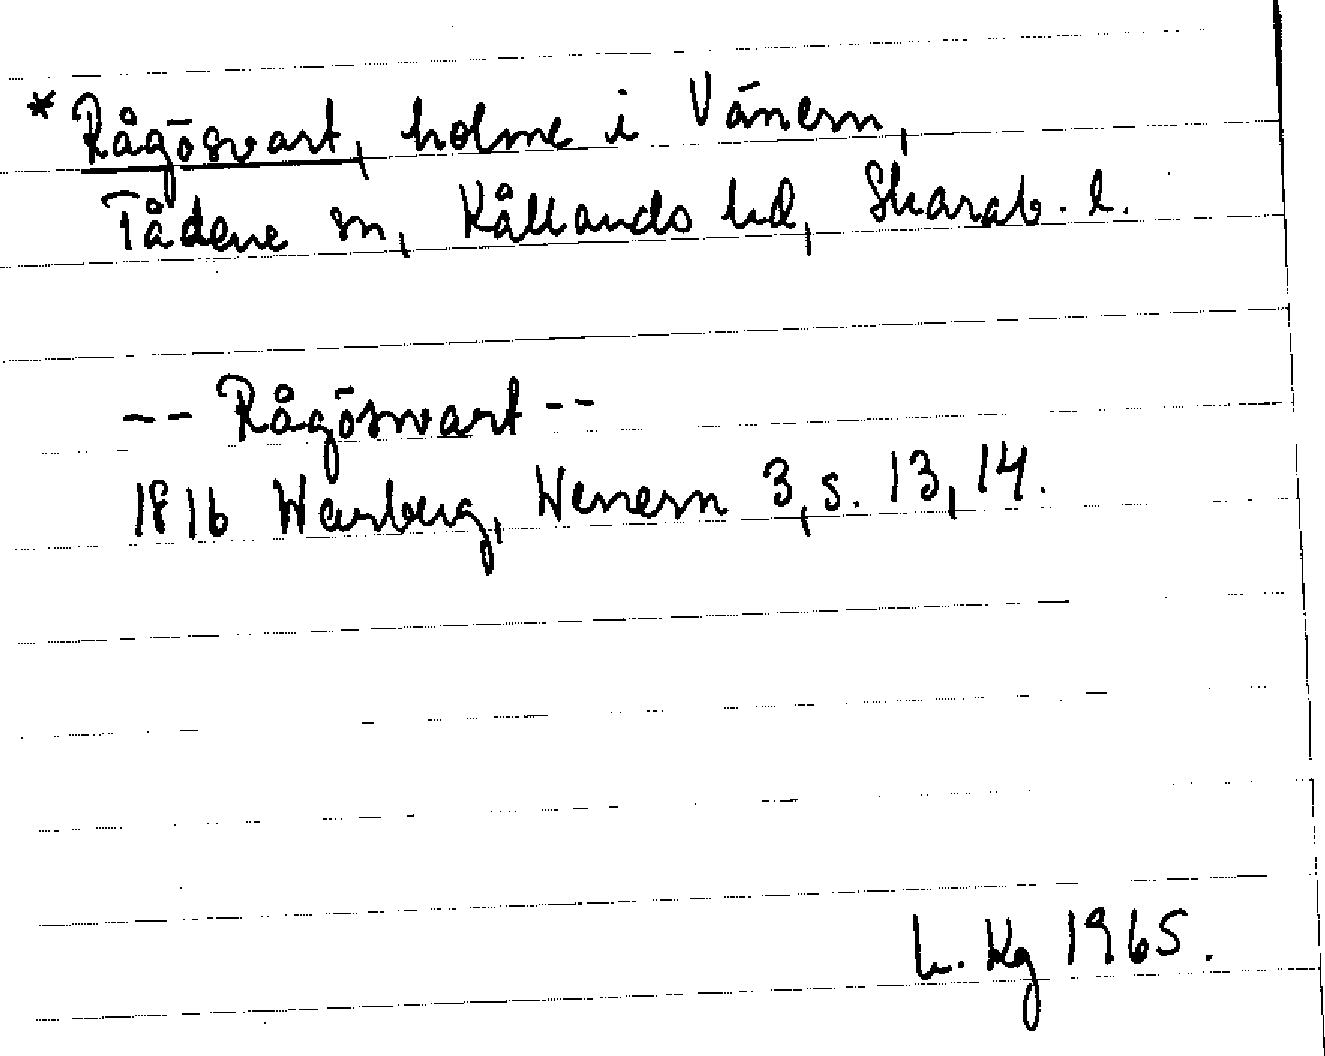 * Rågösvart, holme i Vänern,
Tådene sn, Kållands hd, Skarab. l.
-- Rågösvart --
1816 Warberg, Wenern 3, s. 13, 14.
L. Kg 1965.